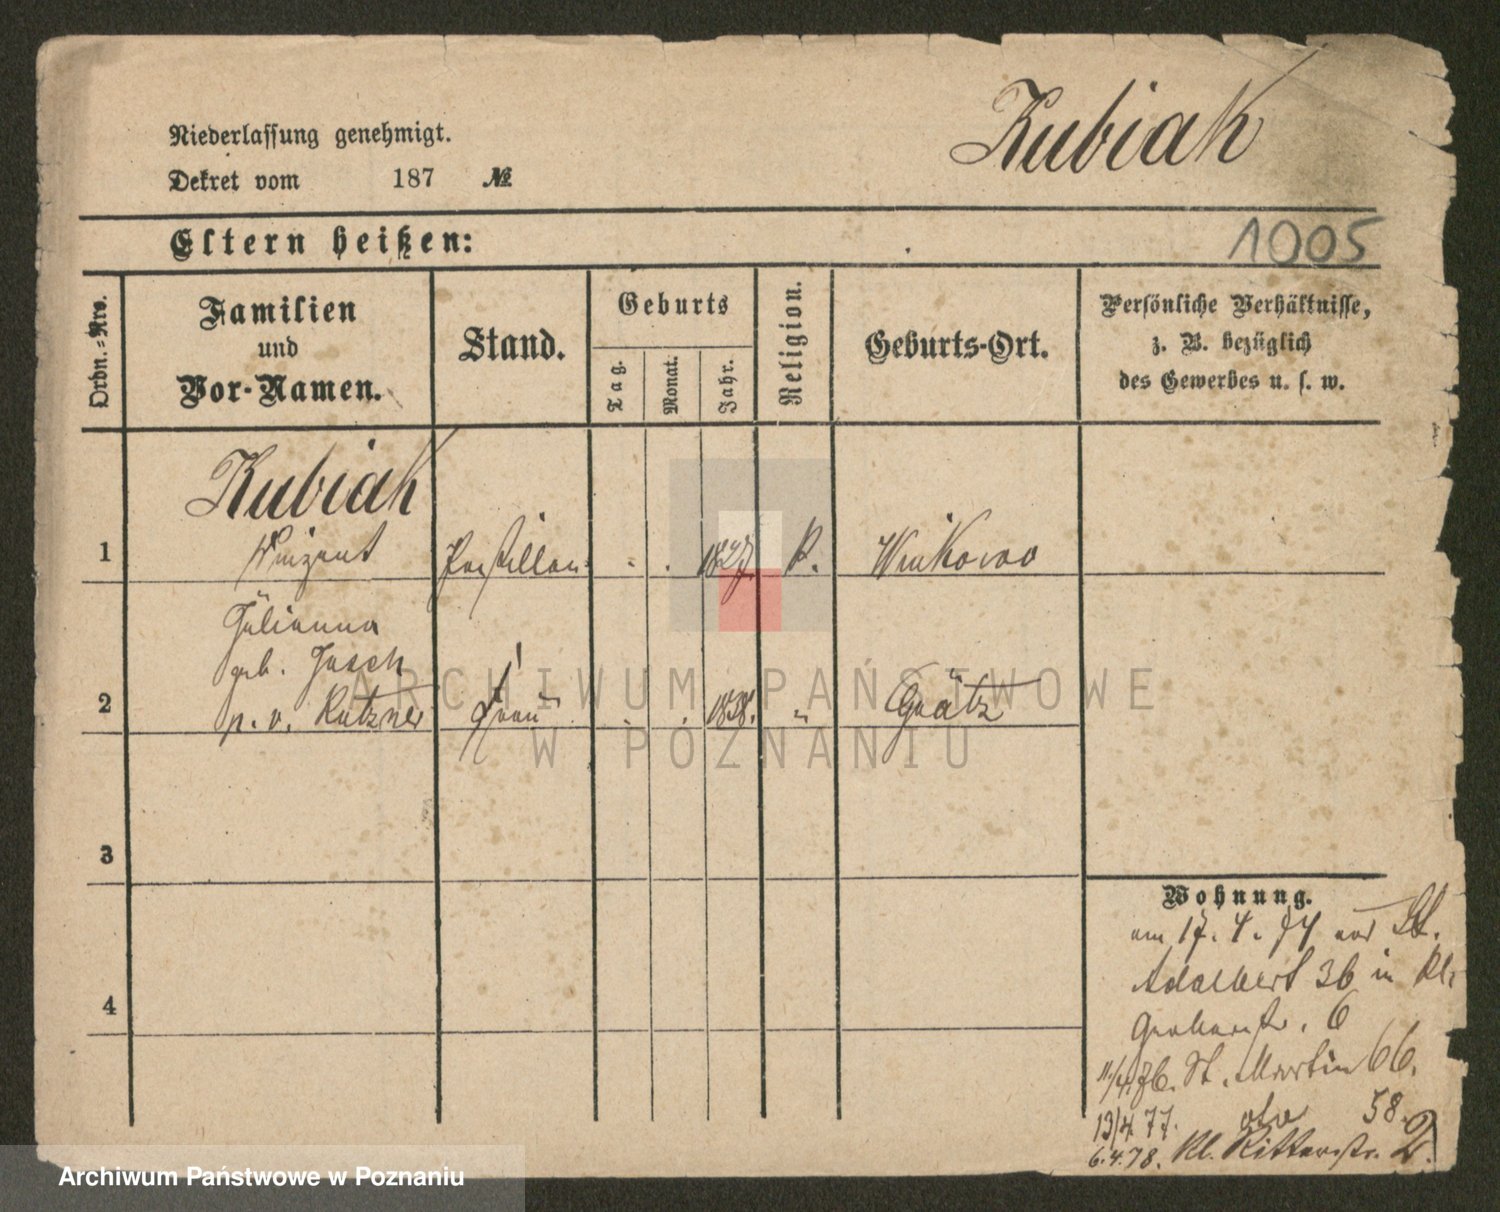 Kubiak
Niederlassung genehmigt.
Dekret vom 187 №
Eltern heißen:
1005
Ordn.-Nrs.
Familien
und
Vor-Namen.
Stand.
Geburts
Tag.
Monat.
Jahr.
Religion.
Geburts-Ort.
Persönliche Verhältnisse,
z. B. bezüglich
des Gewerbes u. s. w.
Kubiak
1 Vinzent Postillon 1827. K.
Julianna
geb. Jasch
2 p. v. Kutzner Frau 1838. " Grätz
3
4
Wohnung.
am 17. 4. 74 von St.
Adalbert 36 in Kl.
Gerberstr. 6
11/4 76. St. Martin 66.
13/4 77. 58.
6.4.78. Kl. Ritterstr. 2.
ARCHIWUM PAŃSTWOWE
W POZNANIU
Archiwum Państwowe w Poznaniu